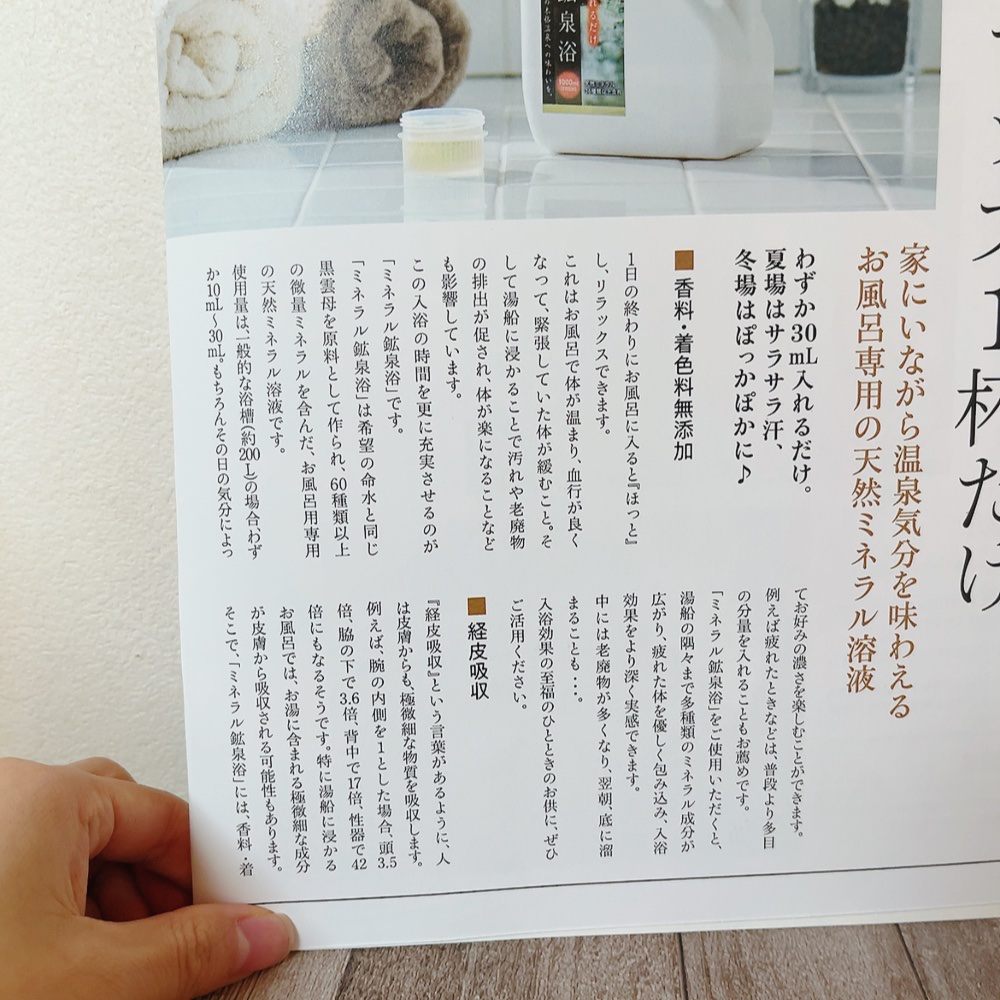 杯だけ
家にいながら温泉気分を味わえる
お風呂専用の天然ミネラル溶液
わずか30mL入れるだけ。
夏場はサラサラ汗、
冬場はぽっかぽかに♪
■香料・着色料無添加
1日の終わりにお風呂に入ると『ほっと』
し、リラックスできます。
これはお風呂で体が温まり、血行が良く
なって、緊張していた体が緩むこと。そ
して湯船に浸かることで汚れや老廃物
の排出が促され、体が楽になることなど
も影響しています。
この入浴の時間を更に充実させるのが
「ミネラル鉱泉浴」です。
「ミネラル鉱泉浴」は希望の命水と同じ
黒雲母を原料として作られ、60種類以上
の微量ミネラルを含んだ、お風呂用専用
の天然ミネラル溶液です。
使用量は、一般的な浴槽(約200L)の場合、わず
か10mL〜30mL。もちろんその日の気分によっ
てお好みの濃さを楽しむことができます。
例えば疲れたときなどは、普段より多目
の分量を入れることもお薦めです。
「ミネラル鉱泉浴」をご使用いただくと、
湯船の隅々まで多種類のミネラル成分が
広がり、疲れた体を優しく包み込み、入浴
効果をより深く実感できます。
中には老廃物が多くなり、翌朝、底に溜
まることも・・・。
入浴効果の至福のひとときのお供に、ぜひ
ご活用ください。
■経皮吸収
『経皮吸収』という言葉があるように、人
は皮膚からも、極微細な物質を吸収します。
例えば、腕の内側を1とした場合、頭3.5
倍、脇の下で3.6倍、背中で17倍、性器で42
倍にもなるそうです。特に湯船に浸かる
お風呂では、お湯に含まれる極微細な成分
が皮膚から吸収される可能性もあります。
そこで、「ミネラル鉱泉浴」には、香料・着
鉱泉浴